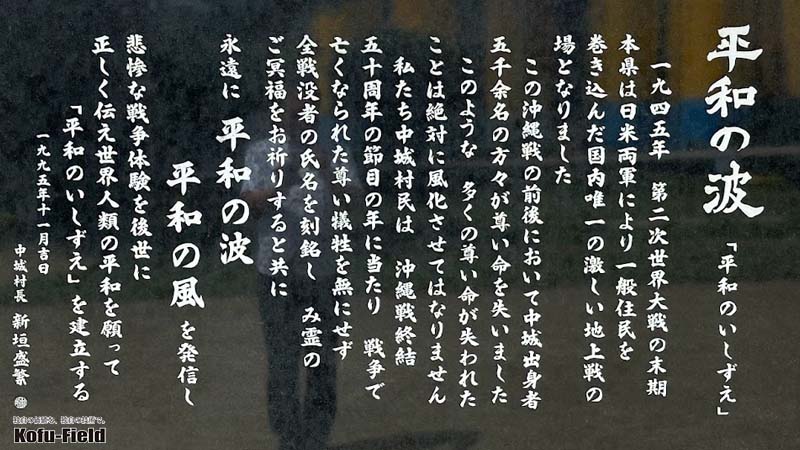 平和の波
「平和のいしずえ」
一九四五年　第二次世界大戦の末期
本県は日米両軍により一般住民を
巻き込んだ国内唯一の激しい地上戦の
場となりました
この沖縄戦の前後において中城出身者
五千余名の方々が尊い命を失いました
このような　多くの尊い命が失われた
ことは絶対に風化させてはなりません
私たち中城村民は　沖縄戦終結
五十周年の節目の年に当たり　戦争で
亡くなられた尊い犠牲を無にせず
全戦没者の氏名を刻銘し　み霊の
ご冥福をお祈りすると共に
永遠に　平和の波
平和の風　を発信し
悲惨な戦争体験を後世に
正しく伝え世界人類の平和を願って
「平和のいしずえ」を建立する
一九九五年十一月吉日
中城村長　新垣盛繁
独自の伝統を、独自の技術で。
Kofu-Field